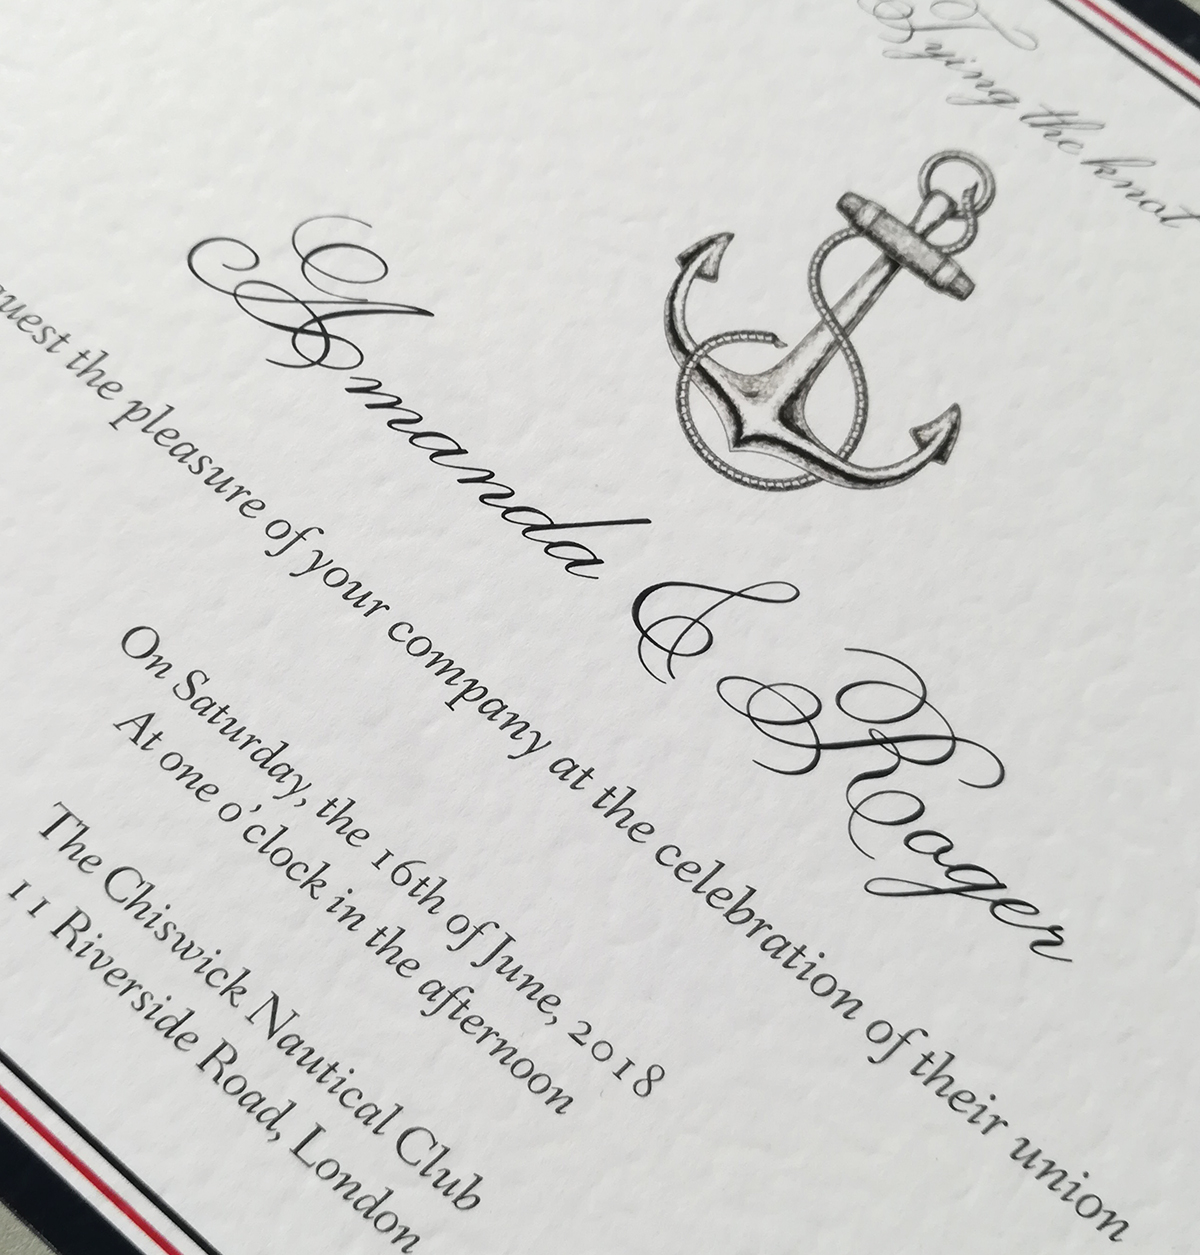 Tying the knot
Amanda & Roger
the pleasure of your company at the celebration of their union
On Saturday, the 16th of June, 2018
At one o'clock in the afternoon
The Chiswick Nautical Club
11 Riverside Road, London